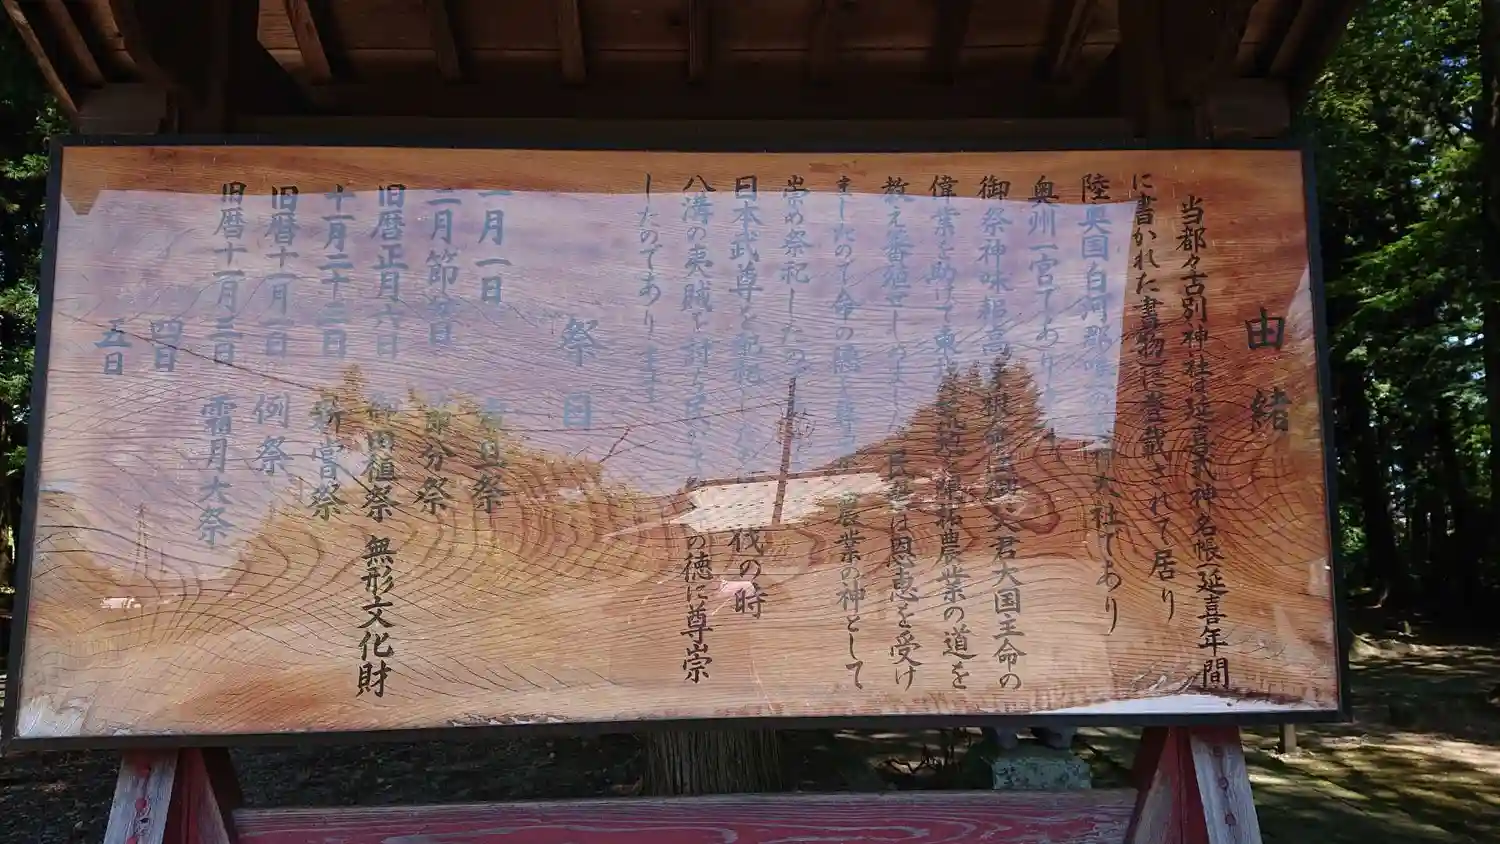 由緒
当都々古別神社は延喜式神名帳(延喜年間
に書かれた書物)に登載されて居り
陸奥国白河郡 大社であり
奥州一宮であります
御祭神味耜高彦根命は父君大国主命の
偉業を助けて東 荒地 農業の道を
教え 民 は恩恵を受け
ましたので命の 農業の神として
崇め祭祀したので
日本武尊を 伐の時
八溝の夷賊を討ち の徳に尊崇
したのであります
祭日
一月一日 歳旦祭
二月節分日 節分祭
旧暦正月六日 御田植祭 無形文化財
十一月二十三日 新嘗祭
旧暦十一月一日 例祭
旧暦十一月三日 霜月大祭
四日
五日